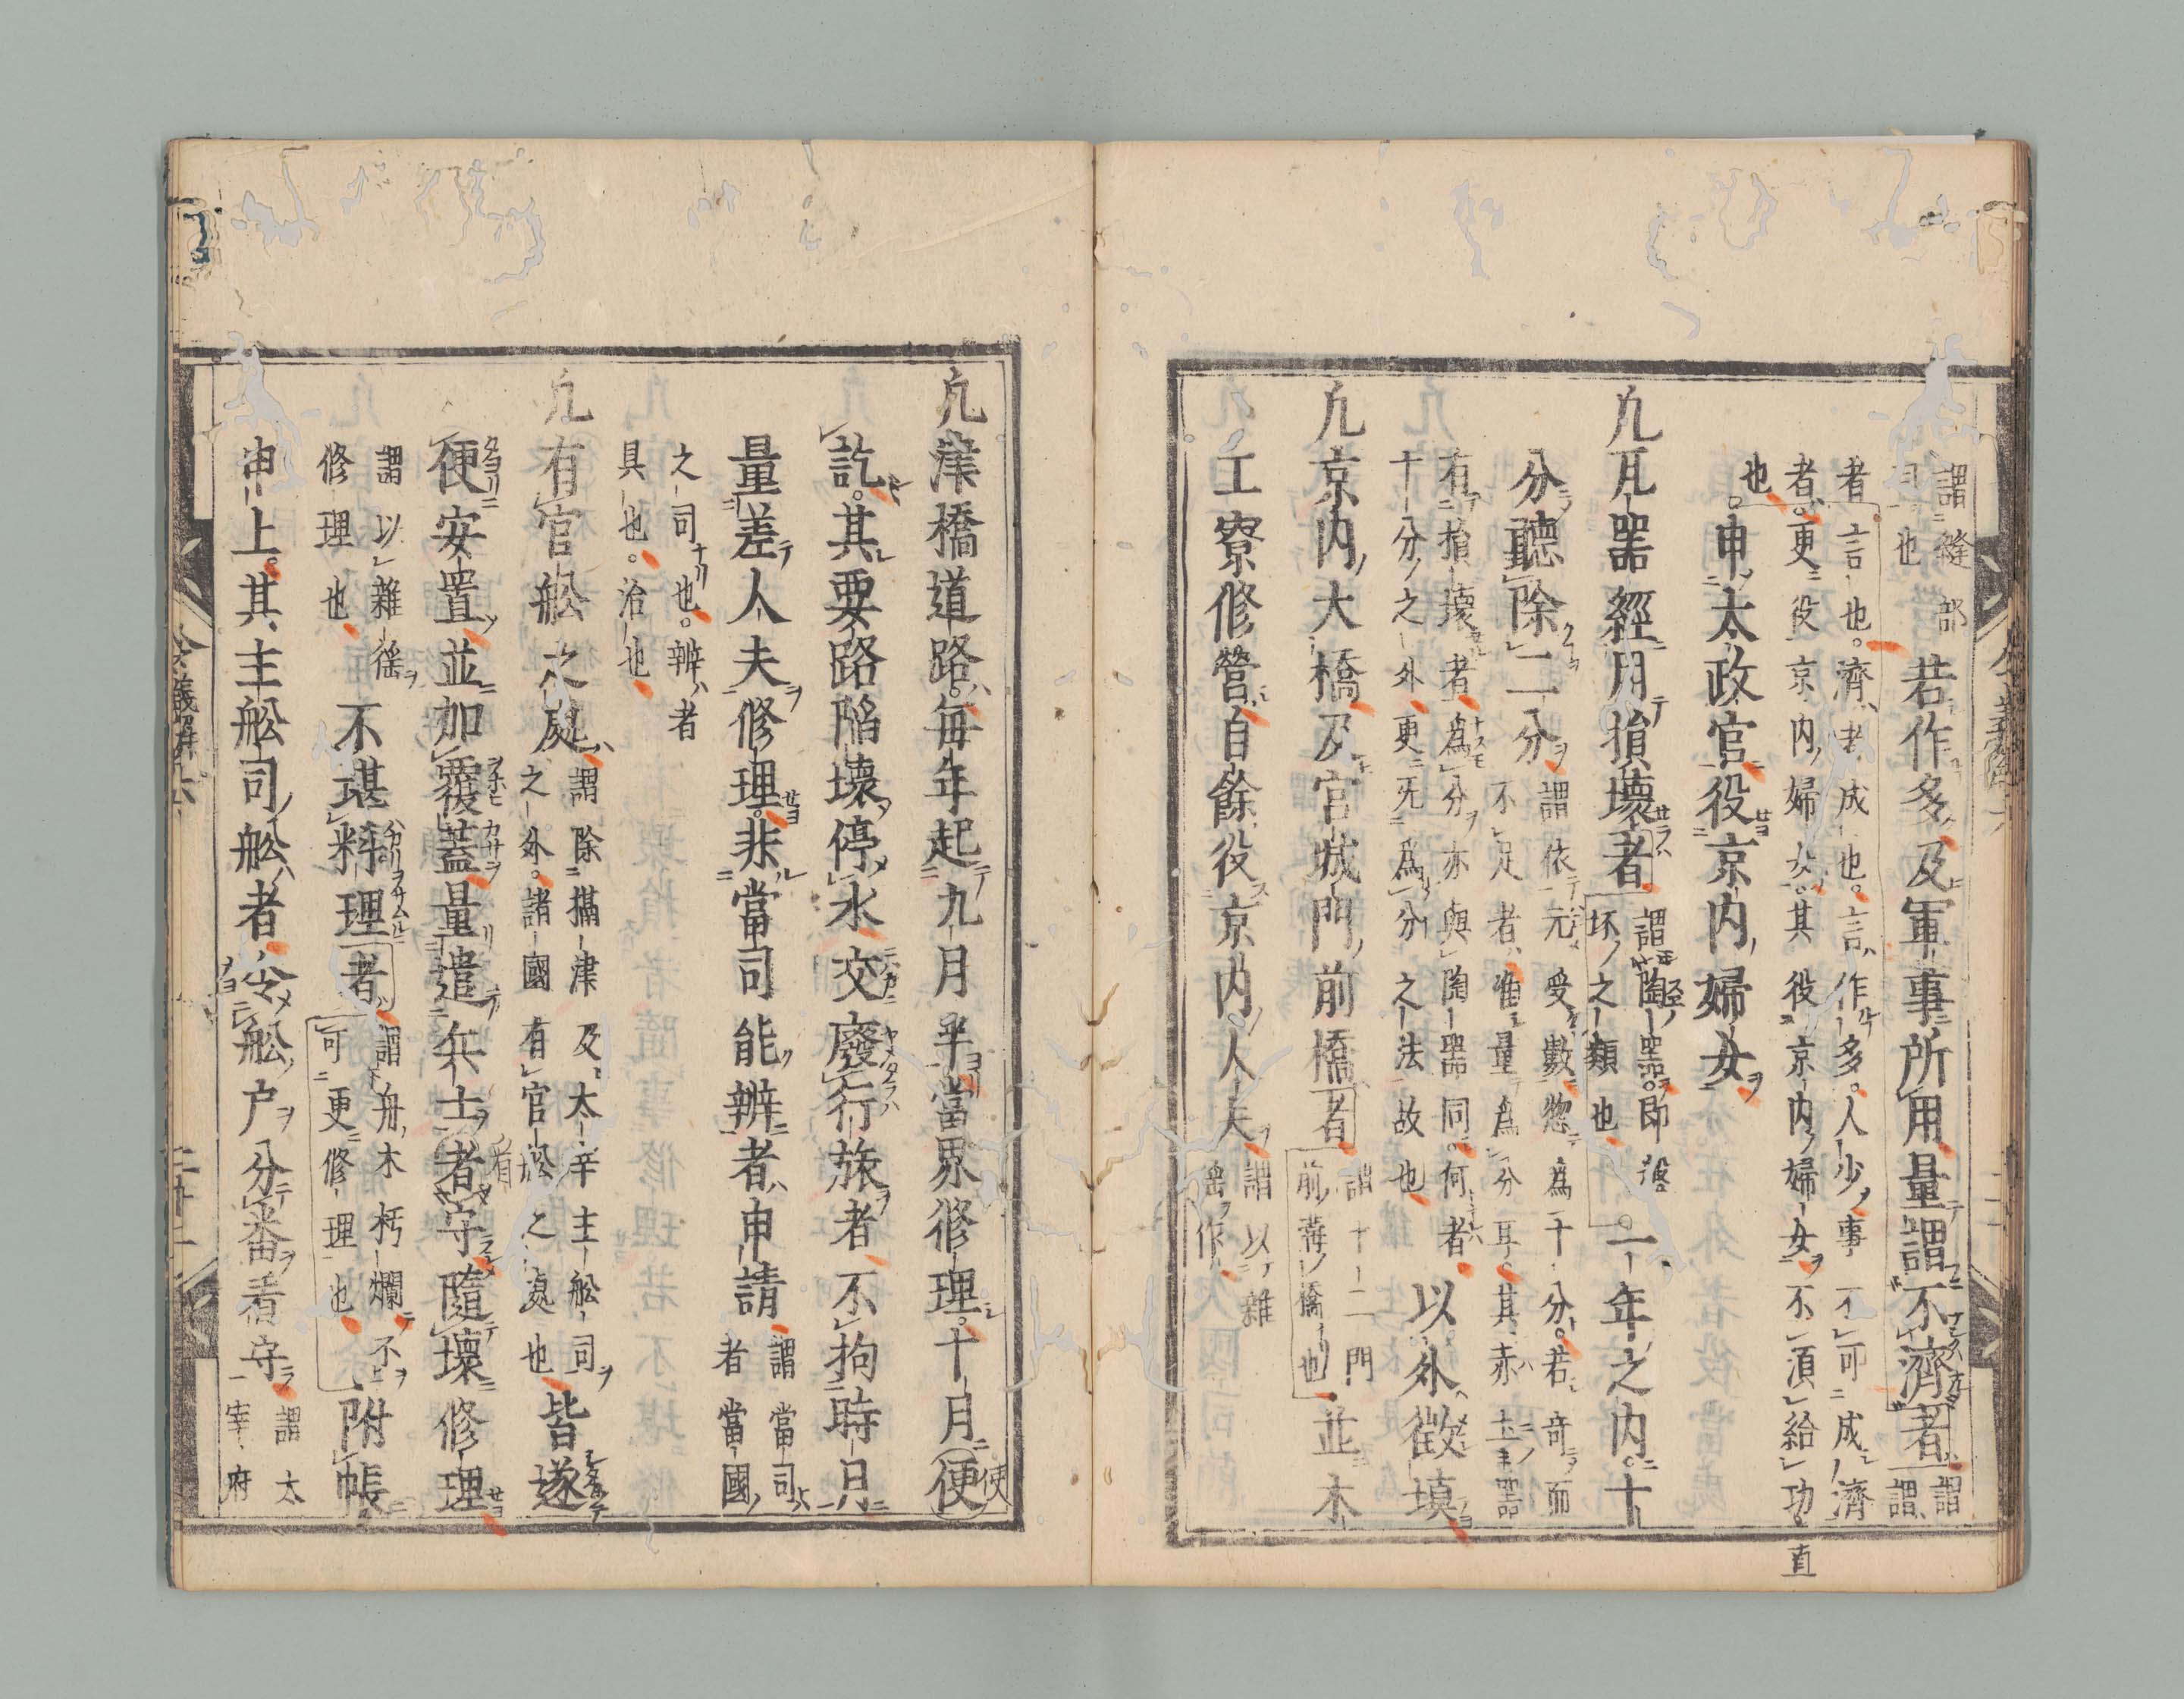 謂縫部
司也
若作多及軍事所用量謂不濟者
謂
謂
者言也濟者成也言作多人少事不可成濟
者更役京内婦女其役京内婦女不須給功直
也
申太政官役京内婦女
凡瓦器經用損壞者
謂陶器即瓷
坏之類也
一年之内十
分聽除二分
謂依元受數惣為十分若奇而
不足者准量為分耳其赤土器
有損壞者為分亦與陶器同何者
十分之外更无為分之法故也
以外徴填
凡京内大橋及宮城門前橋者
謂十二門
前溝橋也
並木
工寮修營自餘役京内人夫
謂以雜
徭作
凡津橋道路毎年起九月半當界修理十月便
使
訖其要路陥壞停水交廢行旅者不拘時月
量差人夫修理非當司能辨者申請
謂當司
者當國
之司也辨者
具也治也
凡有官舩之處
謂除攝津及太宰主舩司
之外諸國有官舩之處也
皆遂
便安置並加覆蓋量遣兵士者守隨壞修理
看
謂以雜徭
修理也
不堪料理者
謂舟木朽爛不
可更修理也
附帳
申上其主舩司舩者令舩戸分番看守
謂太
宰府
令義解六
二十二